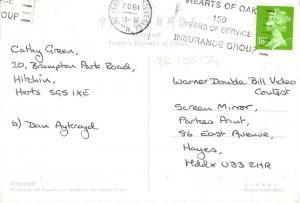 HEARTS OF OAK
150
YEARS OF SERVICE
INSURANCE GROUP
STEVENAGE
1993
People's Republic of China
Cathy Green,
20, Brampton Park Road,
Hitchin,
Herts SG5 1XE
b) Dan Aykroyd
Warner Double Bill Video
Contest
Screen Mirror,
Parkes Print,
86 East Avenue,
Hayes,
Mddx UB3 2HR